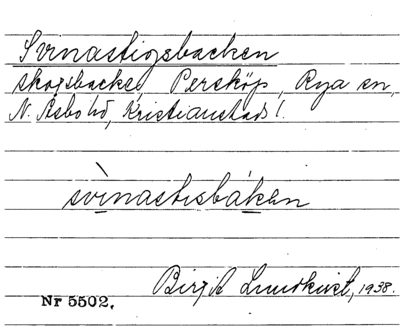 Svinastigsbacken
skogsbacke, Persköp, Rya sn,
N. Åsbo hd, Kristianstads l.
svìnastisbáken
Birgit Lundkvist, 1938.
Nr 5502.